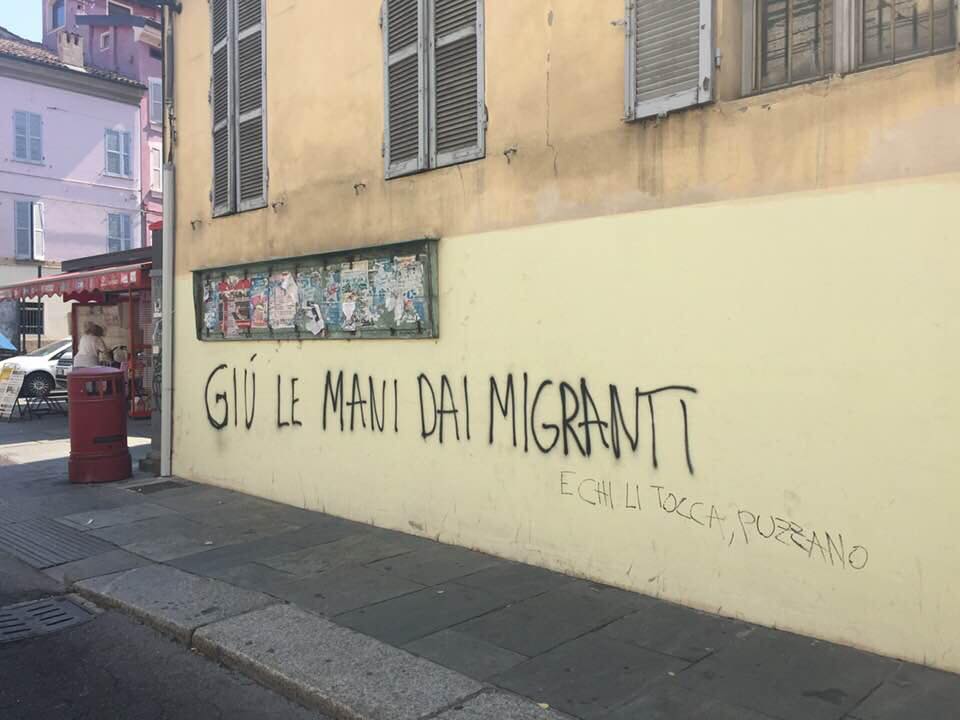 GIÚ LE MANI DAI MIGRANTI
E CHI LI TOCCA, PUZZANO